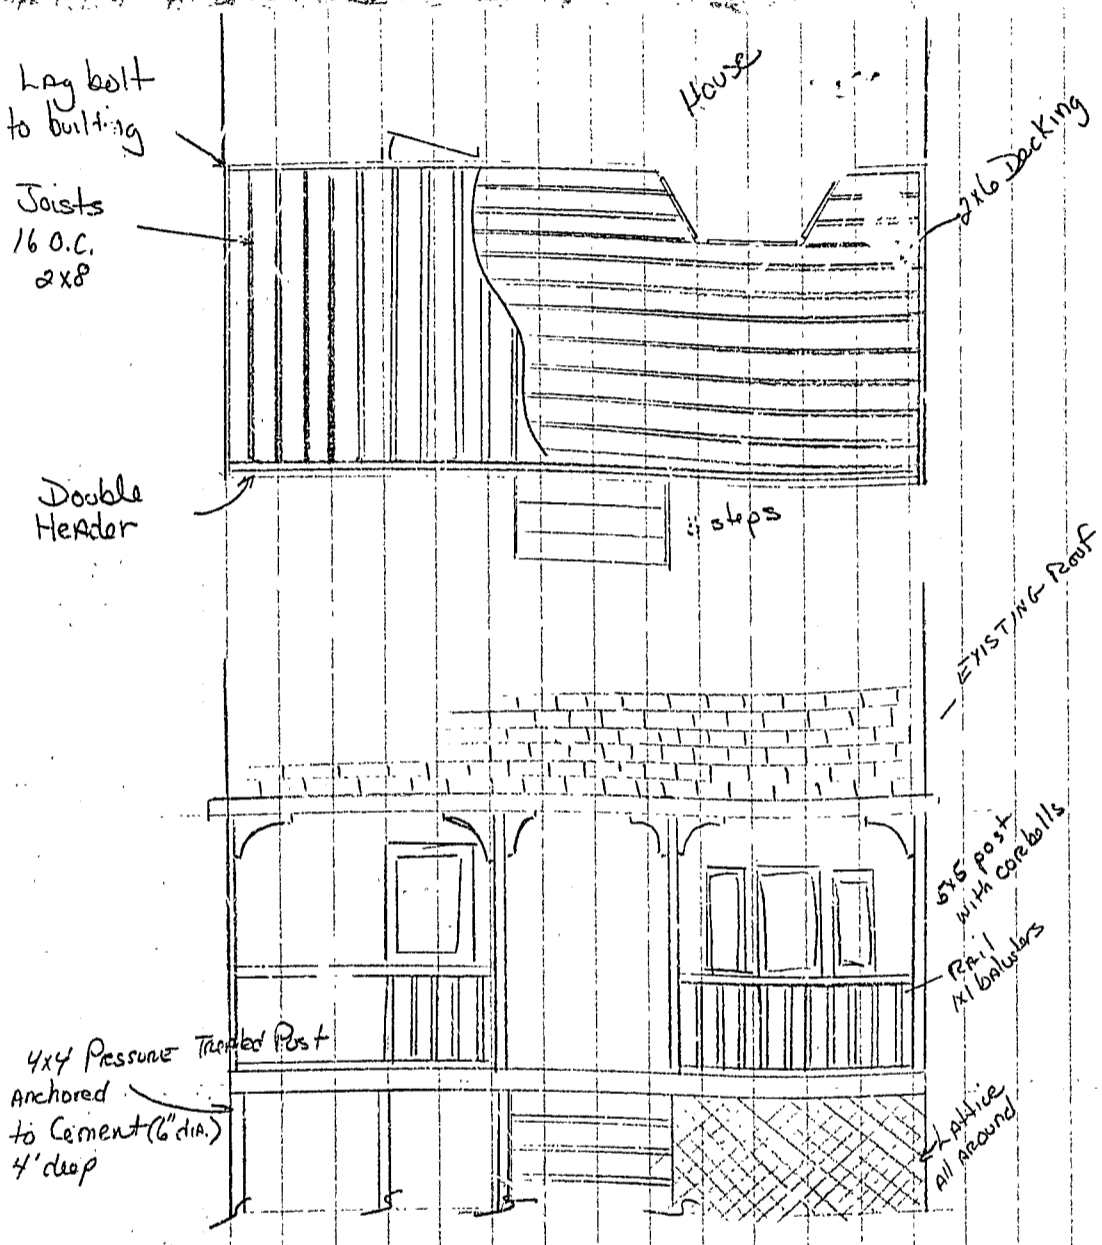 House
Lag bolt
to builting
2x6 Decking
Joists
16 O.C.
2x8
Double
Header
steps
EXISTING Roof
5x5 post
with corebolls
RAil
1x1 balusters
4x4 Pressure Treated Post
Anchored
to Cement (6" dia.)
4' deep
LAttice
All Around